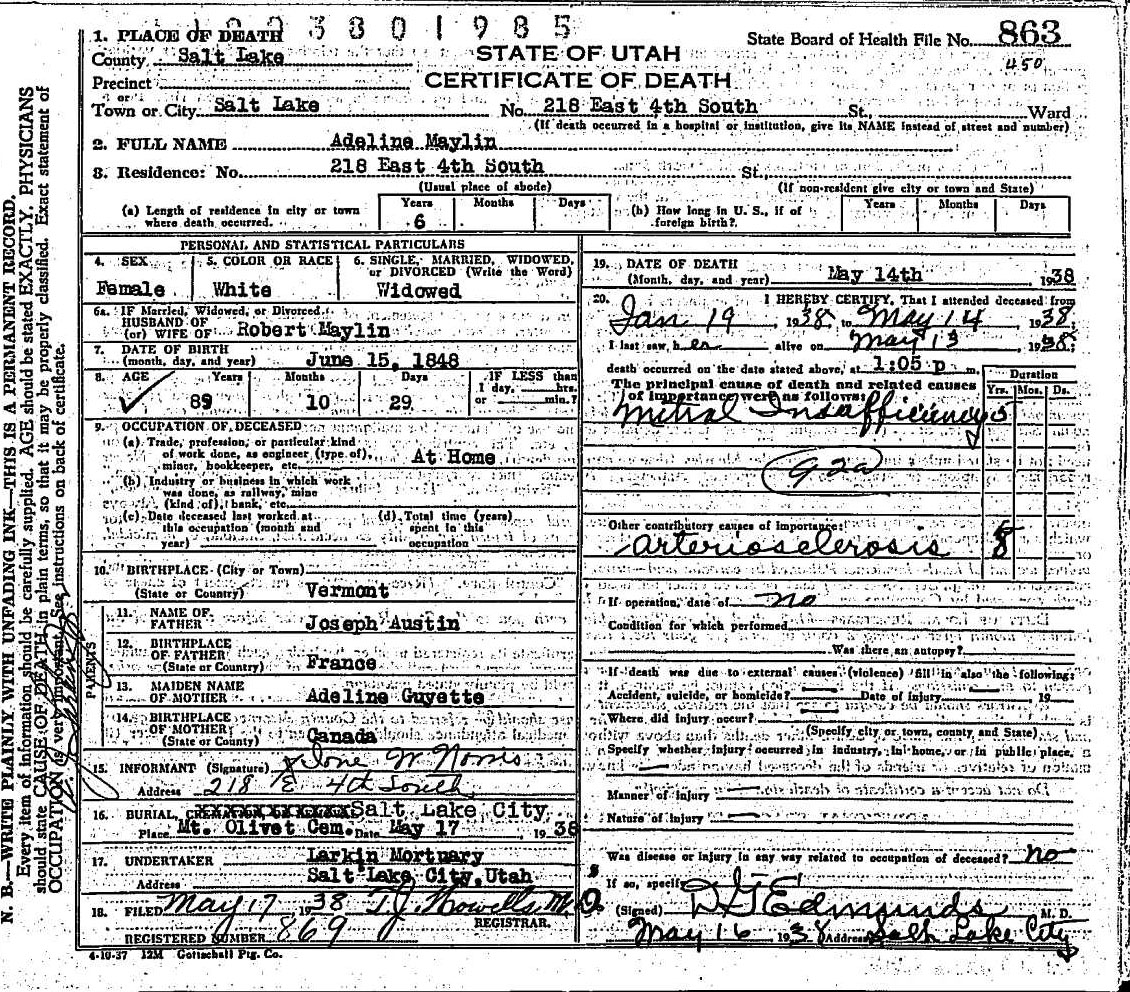 3801985
1. PLACE OF DEATH
State Board of Health File No. 863
450
County Salt Lake
STATE OF UTAH
Precinct
CERTIFICATE OF DEATH
or
Town or City Salt Lake No. 218 East 4th South St., Ward
(If death occurred in a hospital or institution, give its NAME instead of street and number)
2. FULL NAME Adeline Maylin
3. Residence: No. 218 East 4th South St.,
(Usual place of abode) (If non-resident give city or town and State)
(a) Length of residence in city or town where death occurred. Years 6 Months Days
(b) How long in U. S., if of foreign birth? Years Months Days
PERSONAL AND STATISTICAL PARTICULARS
4. SEX 5. COLOR OR RACE 6. SINGLE, MARRIED, WIDOWED, or DIVORCED (Write the Word)
Female White Widowed
6a. IF Married, Widowed, or Divorced
HUSBAND OF
(or) WIFE OF Robert Maylin
7. DATE OF BIRTH
(month, day, and year) June 15, 1848
8. AGE Years Months Days IF LESS than
1 day, hrs.
or min.?
89 10 29
9. OCCUPATION OF DECEASED
(a) Trade, profession, or particular kind
of work done, as engineer (type of),
miner, bookkeeper, etc. At Home
(b) Industry or business in which work
was done, as railway, mine
(kind of), bank, etc.
(c) Date deceased last worked at
this occupation (month and
year)
(d) Total time (years)
spent in this
occupation
10. BIRTHPLACE (City or Town)
(State or Country) Vermont
PARENTS
11. NAME OF
FATHER Joseph Austin
12. BIRTHPLACE
OF FATHER
(State or Country) France
13. MAIDEN NAME
OF MOTHER Adeline Guyette
14. BIRTHPLACE
OF MOTHER
(State or County) Canada
15. INFORMANT (Signature) Ione W Norris
Address 218 E 4th South
16. BURIAL, Salt Lake City
Place Mt. Olivet Cem. Date May 17 1938
17. UNDERTAKER Larkin Mortuary
Address Salt Lake City, Utah
18. FILED May 17 1938 T. J. Howells M.D.
REGISTRAR.
REGISTERED NUMBER 869
4-10-37 12M Gottschall Ptg. Co.
19. DATE OF DEATH
(Month, day, and year) May 14th 1938
20. I HEREBY CERTIFY, That I attended deceased from
Jan 19 1938, to May 14 1938,
I last saw her alive on May 13 1938;
death occurred on the date stated above, at 1:05 p m.
The principal cause of death and related causes
of importance were as follows:
Duration
Yrs. Mos. Ds.
Mitral Insufficiency 5
92a
Other contributory causes of importance:
arteriosclerosis 8
If operation, date of no
Condition for which performed
Was there an autopsy?
If death was due to external causes (violence) fill in also the following:
Accident, suicide, or homicide? Date of injury 19
Where did injury occur?
(Specify city or town, county and State)
Specify whether injury occurred in industry, in home, or in public place.
Manner of injury
Nature of injury
Was disease or injury in any way related to occupation of deceased? no
If so, specify
(Signed) D G Edmunds M. D.
May 16 1938 Address Salt Lake City
N. B.—WRITE PLAINLY WITH UNFADING INK—THIS IS A PERMANENT RECORD.
Every item of information should be carefully supplied. AGE should be stated EXACTLY. PHYSICIANS
should state CAUSE OF DEATH in plain terms, so that it may be properly classified. Exact statement of
OCCUPATION is very important. See instructions on back of certificate.